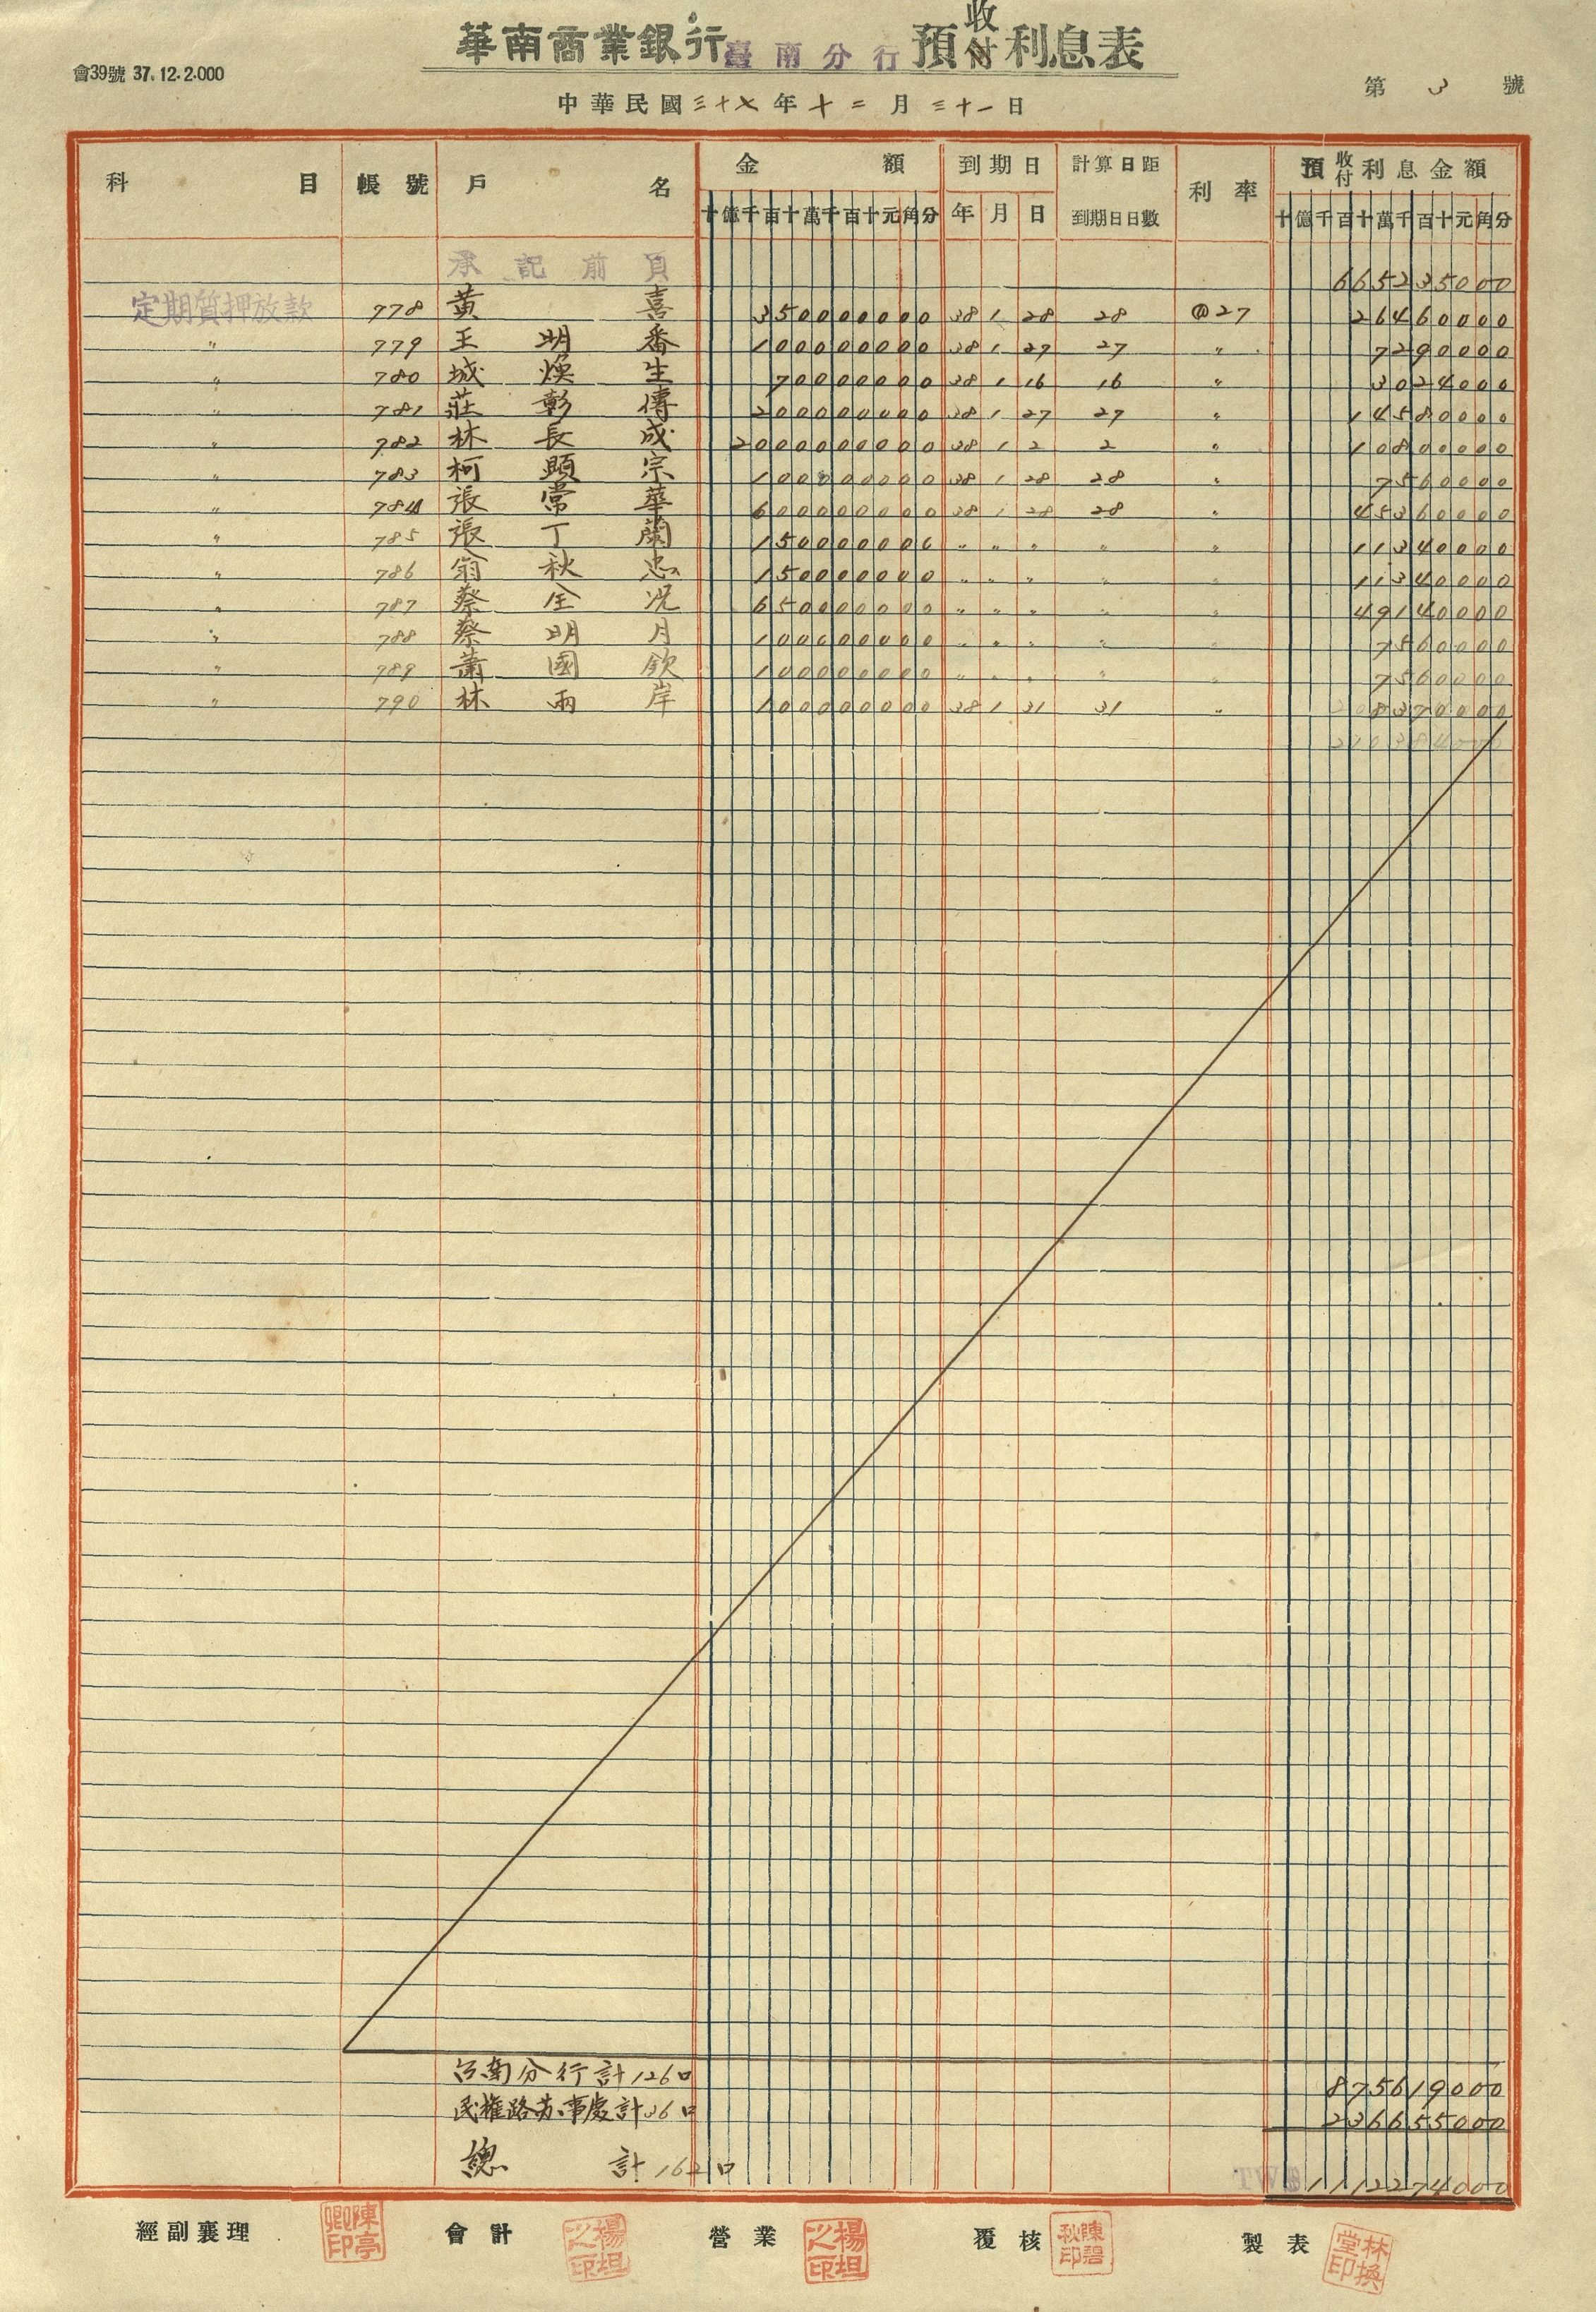 華南商業銀行臺南分行預收付利息表
會39號 37.12.2.000
中華民國三十七年十二月三十一日
第 3 號
科目 帳號 戶名 金額 到期日 計算日距到期日日數 利率 預收付利息金額
十億千百十萬千百十元角分 年 月 日 十億千百十萬千百十元角分
承記前頁 665235000
定期質押放款 778 黃喜 350000000 38 1 28 28 @27 26460000
〃 779 王明番 100000000 38 1 27 27 〃 7290000
〃 780 城煥生 70000000 38 1 16 16 〃 3024000
〃 781 莊彰傳 200000000 38 1 27 27 〃 14580000
〃 782 林長成 2000000000 38 1 2 2 〃 10800000
〃 783 柯顕宗 100000000 38 1 28 28 〃 7560000
〃 784 張常華 600000000 38 1 28 28 〃 45360000
〃 785 張丁蘭 150000000 〃 〃 〃 〃 〃 11340000
〃 786 翁秋忠 150000000 〃 〃 〃 〃 〃 11340000
〃 787 蔡全況 650000000 〃 〃 〃 〃 〃 49140000
〃 788 蔡明月 100000000 〃 〃 〃 〃 〃 7560000
〃 789 蕭國欽 100000000 〃 〃 〃 〃 〃 7560000
〃 790 林雨岸 100000000 38 1 31 31 〃 8370000
210384000
台南分行計126口 875619000
民權路办事處計36口 236655000
總計162口 TW$ 1112274000
經副襄理 陳亭卿印 會計 楊坦之印 營業 楊坦之印 覆核 陳碧秋印 製表 林換堂印